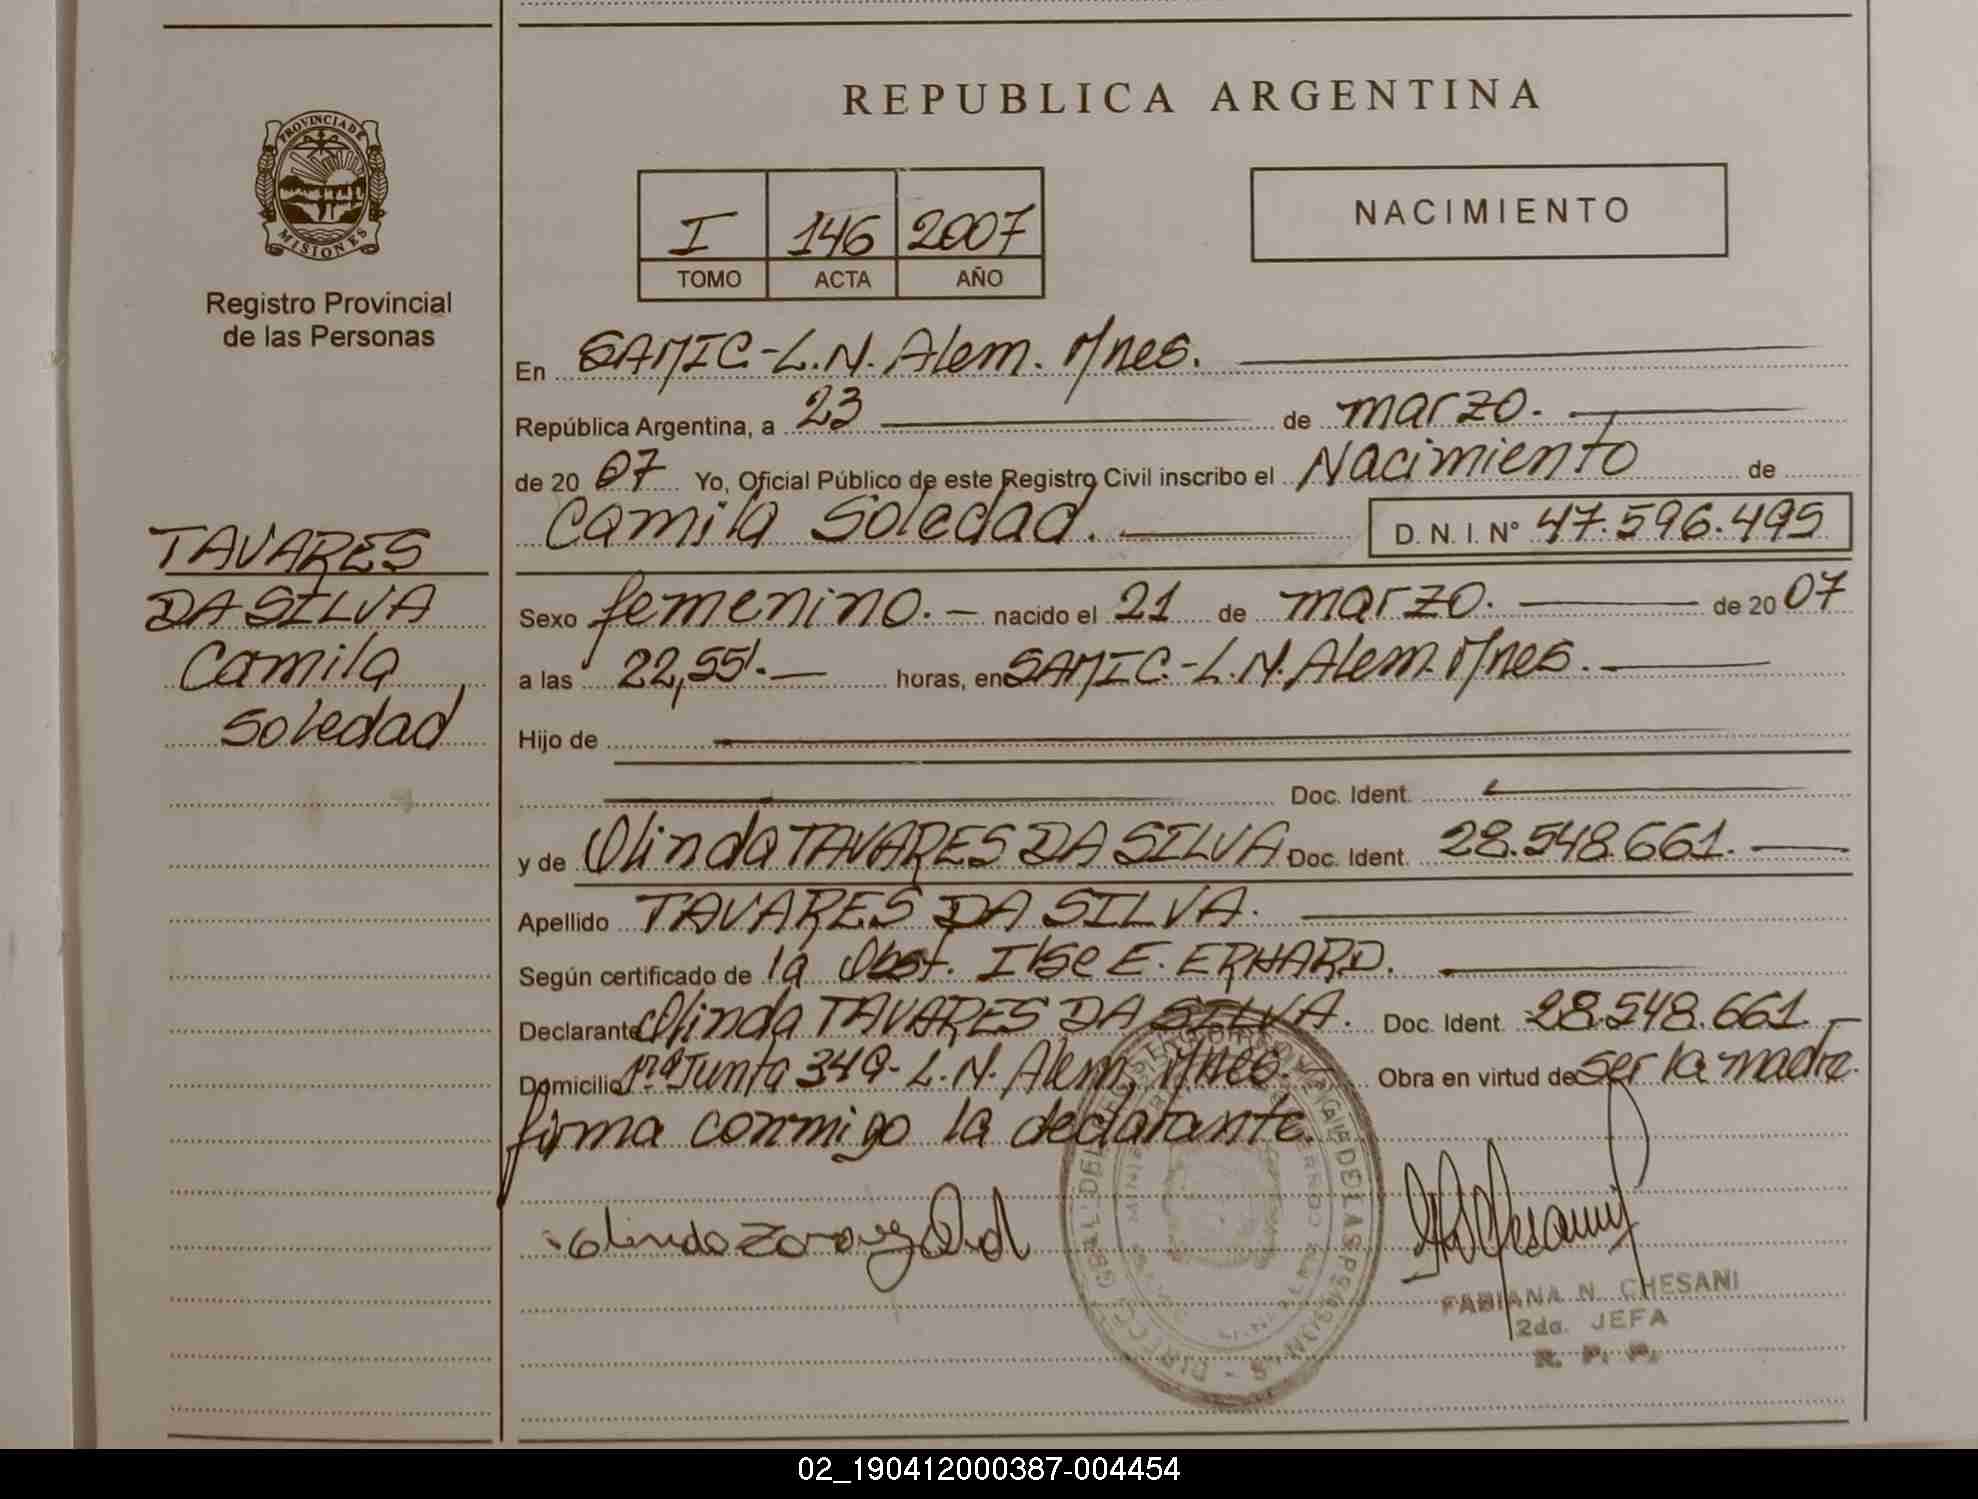 REPUBLICA ARGENTINA
PROVINCIA DE
MISIONES
Registro Provincial
de las Personas
I 146 2007
TOMO ACTA AÑO
NACIMIENTO
En SAMIC-L.N. Alem. M/nes.
República Argentina, a 23 de marzo.
de 20 07 Yo, Oficial Público de este Registro Civil inscribo el Nacimiento de
Camila Soledad. D. N. I. N° 47.596.495
TAVARES
DA SILVA
Camila
Soledad
Sexo femenino. nacido el 21 de marzo. de 20 07
a las 22,55'. horas, en SAMIC.-L.N. Alem. M/nes.
Hijo de
Doc. Ident.
y de Olinda TAVARES DA SILVA Doc. Ident. 28.548.661.
Apellido TAVARES DA SILVA.
Según certificado de la Obst. Ilse E. ERHARD.
Declarante Olinda TAVARES DA SILVA. Doc. Ident. 28.548.661.
Domicilio 1ra Junta 349- L.N. Alem, M/nes. Obra en virtud de ser la madre.
firma conmigo la declarante.
FABIANA N. CHESANI
2da. JEFA
R. P. P.
02_190412000387-004454